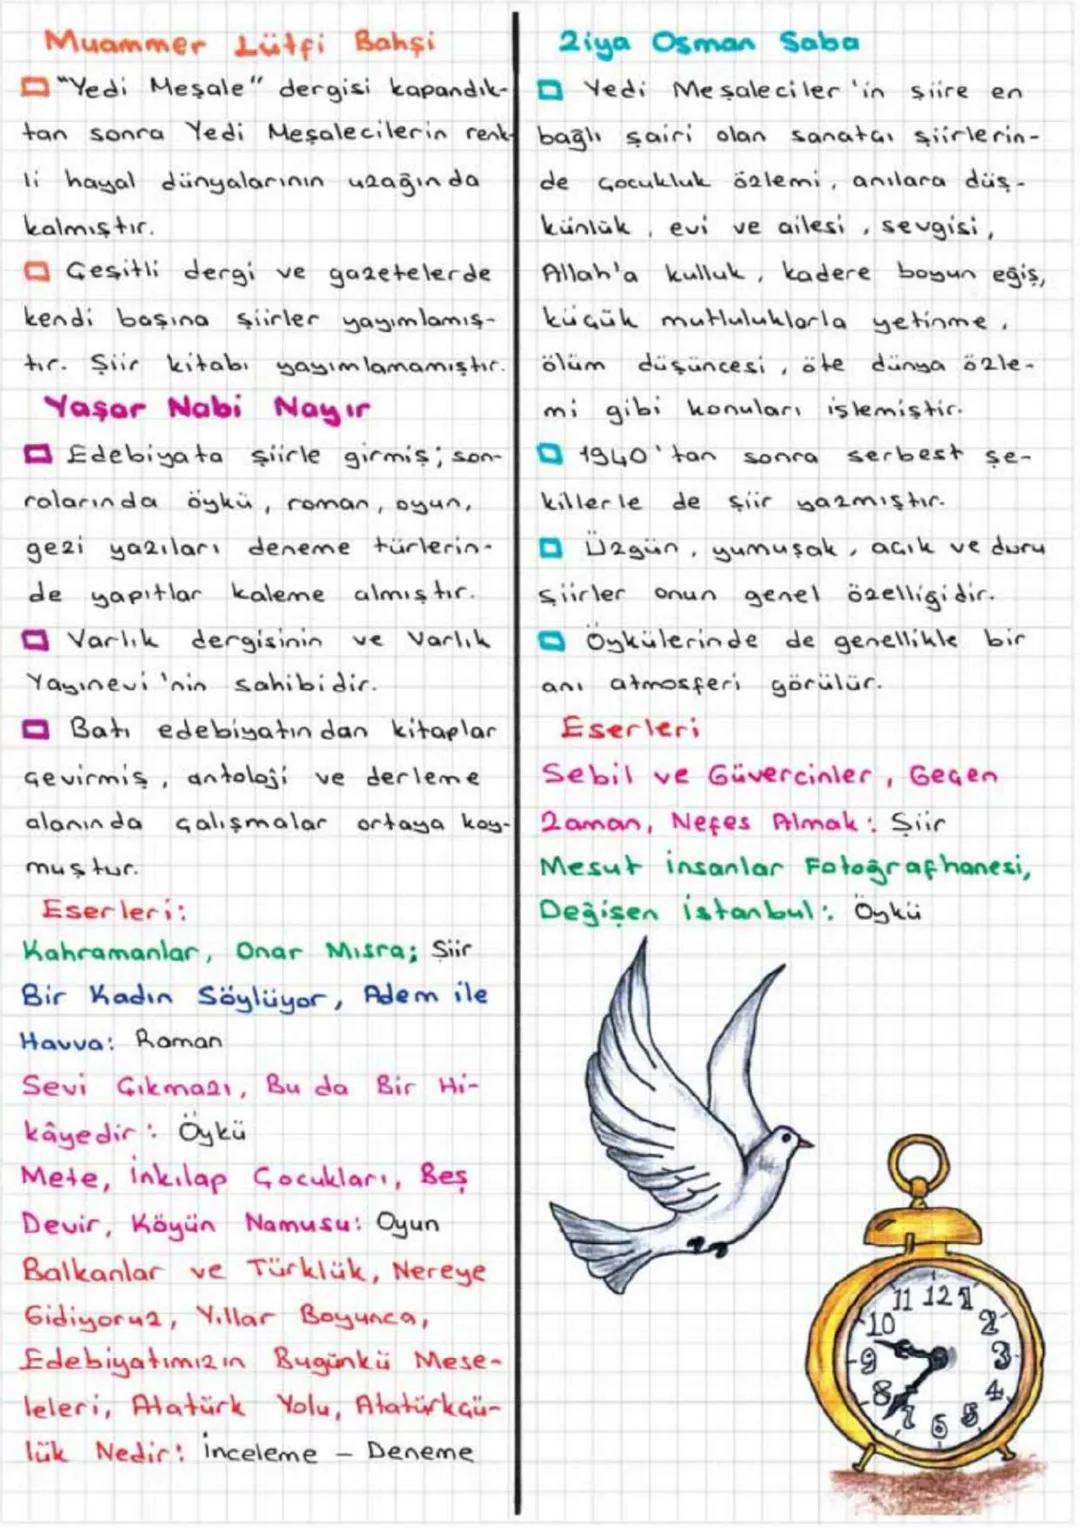 Muammer Lütfi Bahşi
"Yedi Meşale" dergisi kapandık-
tan sonra Yedi Meşalecilerin renk-
li hayal dünyalarının uzağında
kalmıştır.
Çeşitli dergi ve gazetelerde
kendi başına şiirler yayımlamış-
tır. Şiir kitabı yayımlamamıştır.
Yaşar Nabi Nayır
Edebiyata şiirle girmiş; son-
ralarında öykü, roman, oyun,
gezi yazıları deneme türlerin-
de yapıtlar kaleme almıştır.
Varlık dergisinin ve Varlık
Yayınevi'nin sahibidir.
Batı edebiyatından kitaplar
çevirmiş, antoloji ve derleme
alanında çalışmalar ortaya koy-
muştur.
Eserleri:
Kahramanlar, Onar Mısra; Şiir
Bir Kadın Söylüyor, Adem ile
Havva: Roman
Sevi Çıkmazı, Bu da Bir Hi-
kâyedir: Öykü
Mete, İnkılap Çocukları, Beş
Devir, Köyün Namusu: Oyun
Balkanlar ve Türklük, Nereye
Gidiyoruz, Yıllar Boyunca,
Edebiyatımızın Bugünkü Mese-
leleri, Atatürk Yolu, Atatürkçü-
lük Nedir: İnceleme - Deneme
Ziya Osman Saba
Yedi Meşaleciler'in şiire en
bağlı şairi olan sanatçı şiirlerin-
de çocukluk özlemi, anılara düş-
künlük, evi ve ailesi, sevgisi,
Allah'a kulluk, kadere boyun eğiş,
küçük mutluluklarla yetinme,
ölüm düşüncesi, öte dünya özle-
mi gibi konuları işlemiştir.
1940'tan sonra serbest şe-
killerle de şiir yazmıştır.
Üzgün, yumuşak, açık ve duru
şiirler onun genel özelliğidir.
Öykülerinde de genellikle bir
anı atmosferi görülür.
Eserleri
Sebil ve Güvercinler, Geçen
Zaman, Nefes Almak: Şiir
Mesut İnsanlar Fotoğrafhanesi,
Değişen İstanbul: Öykü
11 12 1
10 2
9 3
8 4
7 6 5